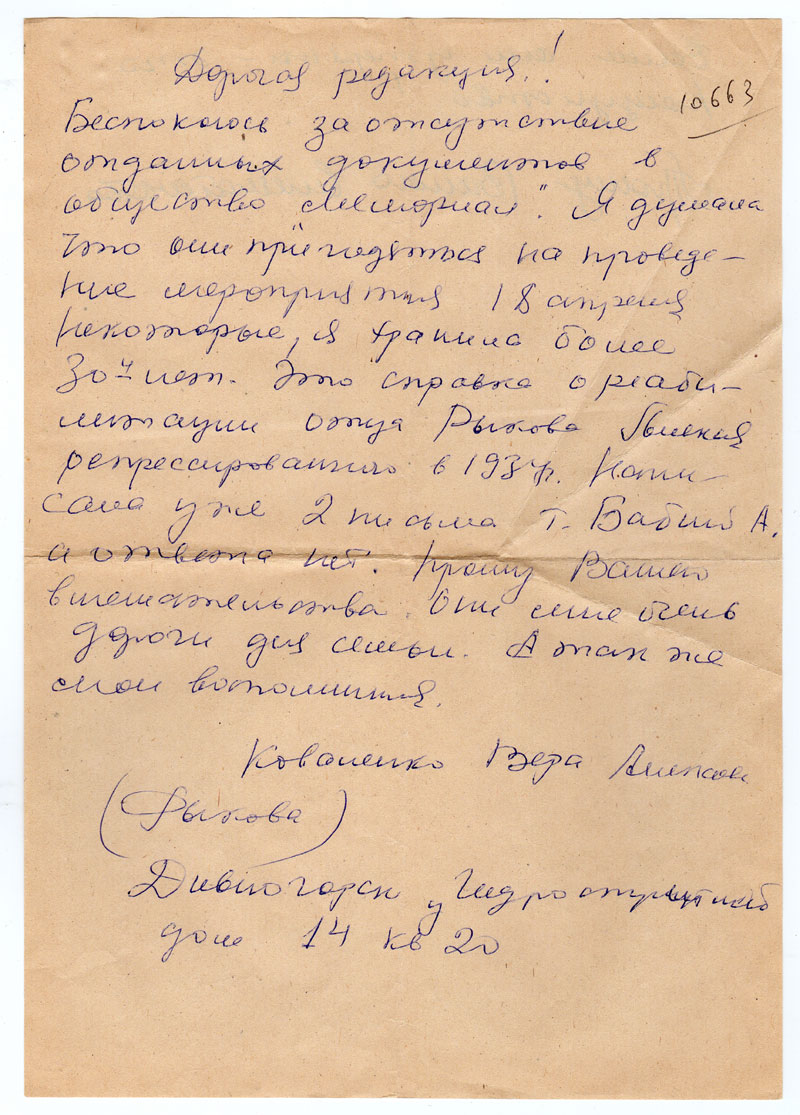 Дорогая редакция!
10663
Беспокоюсь за отсутствие
отданных документов в
общество "Мемориал". Я думала
что они пригодятся на проведе-
ние мероприятия 18 апреля
Некоторые, я хранила более
30ти лет. Это справка о реаби-
литации отца Рыкова
репрессированного в 1937г. Напи-
сала уже 2 письма т. Бабий А.
а ответа нет. Прошу Вашего
вмешательства. Они мне очень
дороги для семьи. А так же
мои воспоминия.
Коваленко Вера Алексеев
(Рыкова)
Дивногорск у Гидростроителей
дом 14 кв 20